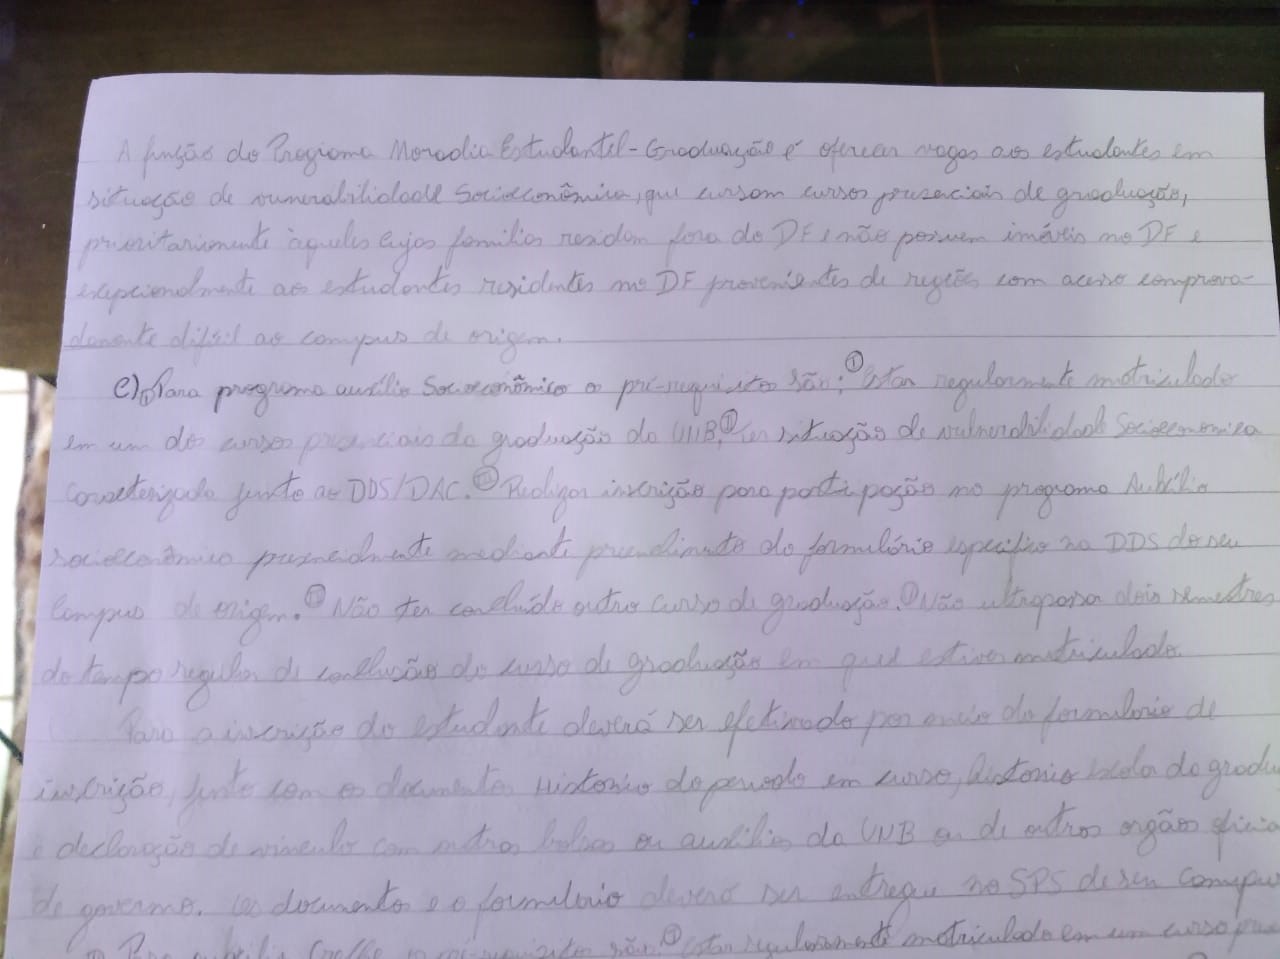 A função do Programa Moradia Estudantil - Graduação é oferecer vagas aos estudantes em
situação de vunerabilidade Socioeconômica, que cursam cursos presenciais de graduação,
prioritariamente àqueles cujas familias residam fora do DF e não possuem imóveis no DF e
excepcionalmente aos estudantes residentes no DF provenientes de regiões com acesso comprova-
damente difícil ao campus de origem.
e) ① Para programa auxílio Socioeconômico o pré-requisitos são: Ⓘ Estar regularmente matriculado
em um dos cursos presenciais de graduação da UNB, Ⓘ Ⓘ ter situação de vulnerabilidade Socioeconomica
junto ao DDS/DAC. Realizar inscrição para participação no programa Auxílio
socioeconômico presencialmente mediante do formulário especifico na DDS do seu
Campus de origem. Não ter concluído outro curso de graduação. Não ultrapassa dois semestres
do tempo regular de conclusão do curso de graduação em que estiver matriculado.
Para a inscrição do estudante deverá ser efetivado por meio do formulario de
inscrição, junto com os documentos do periodo em curso, da
e declaração de vinculo com outras bolsas ou auxílios da UNB ou de outros orgãos
de governo. documentos e o formulario deverá ser entregue no SPS de seu
são: Estar regularmente matriculado em um curso